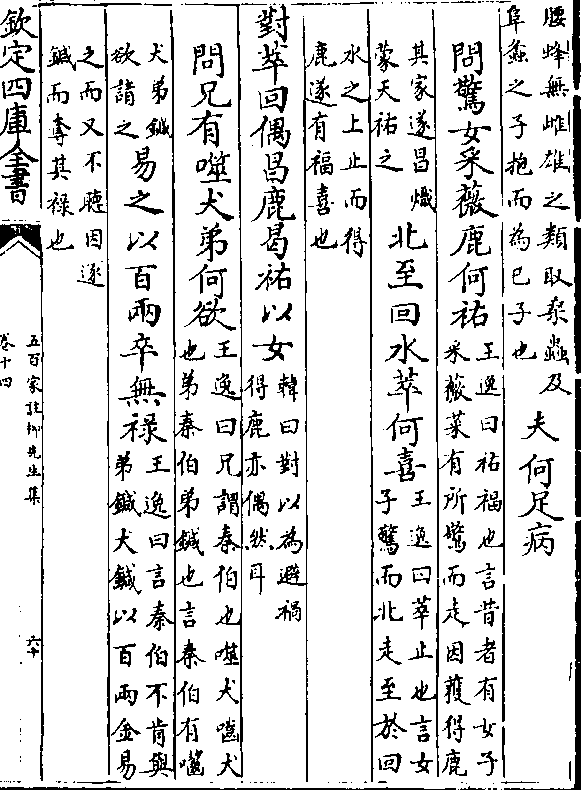 腰蜂無雌雄之類取桑蟲及
阜螽之子抱而為已子也
夫何足病
問驚女采薇鹿何祐
王逸曰祐福也言昔者有女子
采薇菜有所驚而走因獲得鹿
其家遂昌熾
蒙天祐之
北至回水萃何喜
王逸曰萃止也言女
子驚而北走至於回
水之上止而得
鹿遂有福喜也
對萃回偶昌鹿曷祐以女
韓曰對以為避禍
得鹿亦偶然耳
問兄有噬犬弟何欲
王逸曰兄謂秦伯也噬犬嚙犬
也弟秦伯弟鍼也言秦伯有噬
犬弟鍼
欲請之
易之以百兩卒無禄
王逸曰言秦伯不肯與
弟鍼犬鍼以百兩金易
之而又不聽因逐
鍼而奪其禄也
欽定四庫全書
五百家註柳先生集
卷十四
六十